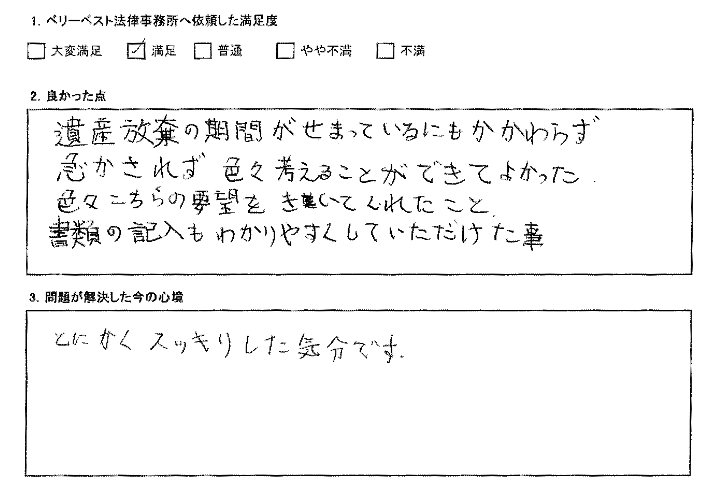 1. ベリーベスト法律事務所へ依頼した満足度
□ 大変満足 ☑ 満足 □ 普通 □ やや不満 □ 不満
2. 良かった点
遺産放棄の期間がせまっているにもかかわらず
急かされず 色々考えることができてよかった.
色々こちらの要望を きいてくれたこと.
書類の記入も わかりやすくしていただけた事
3. 問題が解決した今の心境
とにかく スッキリした気分です.